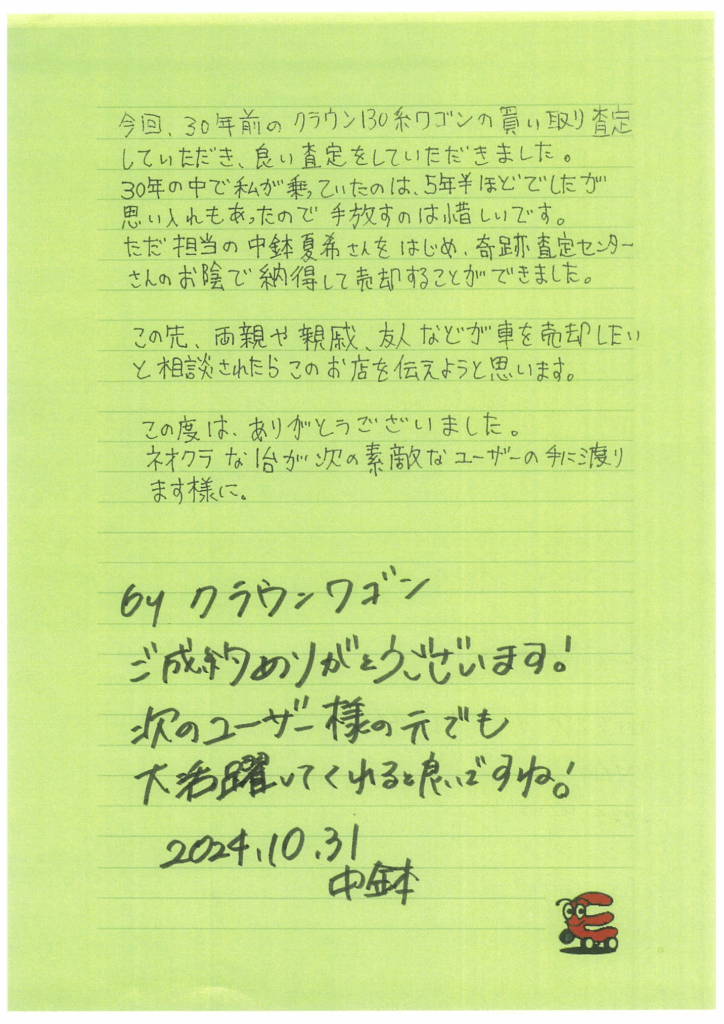 今回、30年前のクラウン130系ワゴンの買い取り査定
していただき、良い査定をしていただきました。
30年の中で私が乗っていたのは、5年半ほどでしたが
思い入れもあったので手放すのは惜しいです。
ただ担当の中鉢夏希さんをはじめ、奇跡査定センター
さんのお陰で納得して売却することができました。
この先、両親や親戚、友人などが車を売却したい
と相談されたらこのお店を伝えようと思います。
この度は、ありがとうございました。
ネオクラな1台が次の素敵なユーザーの手に渡り
ます様に。
by クラウンワゴン
ご成約ありがとうございます!
次のユーザー様の元でも
大活躍してくれると良いですね!
2024.10.31
中鉢